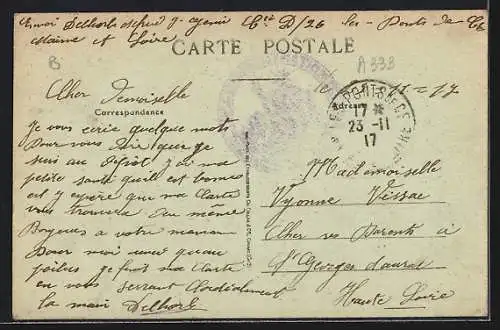 Envoi Delhorb 9e génie Cie D/26 les Ponts de Cé
Maine et Loire
CARTE POSTALE
B
A 333
11 = 17
Cher Demoiselle
Correspondance
Adresse
LES PONTS DE CE
17 *
23 -11
17
Je vous écrie quelque mots
Pour vous dir que je
suis au Depôt j'ai ma
petite santé qu'il est bonne
et j'espère que ma Carte
vous trouvera Au même
Bonjours a votre maman
Pour moi avec qu'au
poilus je finit ma Carte
en vous serrant Cordialement
la main Delhorb
Mademoiselle
Yvonne Vissac
Cher ses Parents a
St Georges d'aurac
Haute Loire